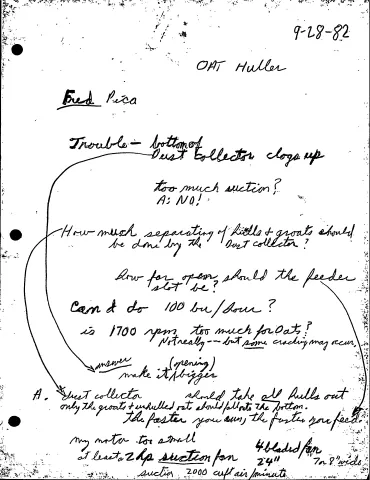 9-28-82
OAT Huller
Fred Pica
Trouble — bottom of
Dust collector clogs up
too much suction?
A: NO!
How much separating of hulls & groats should
be done by the Dust collector?
how far open should the feeder
slot be?
Can I do 100 bu/hour?
is 1700 rpm too much for Oats?
Not really -- but some cracking may occur,
answer (opening)
make it bigger
A. Dust collector should take all hulls out
only the groats & unhulled oats should fall out the bottom.
the faster you run, the faster you feed.
my motor too small
at least 2 hp suction fan
4 bladed fan
24" 7 or 8" wide
suction 2000 cuft air/minute